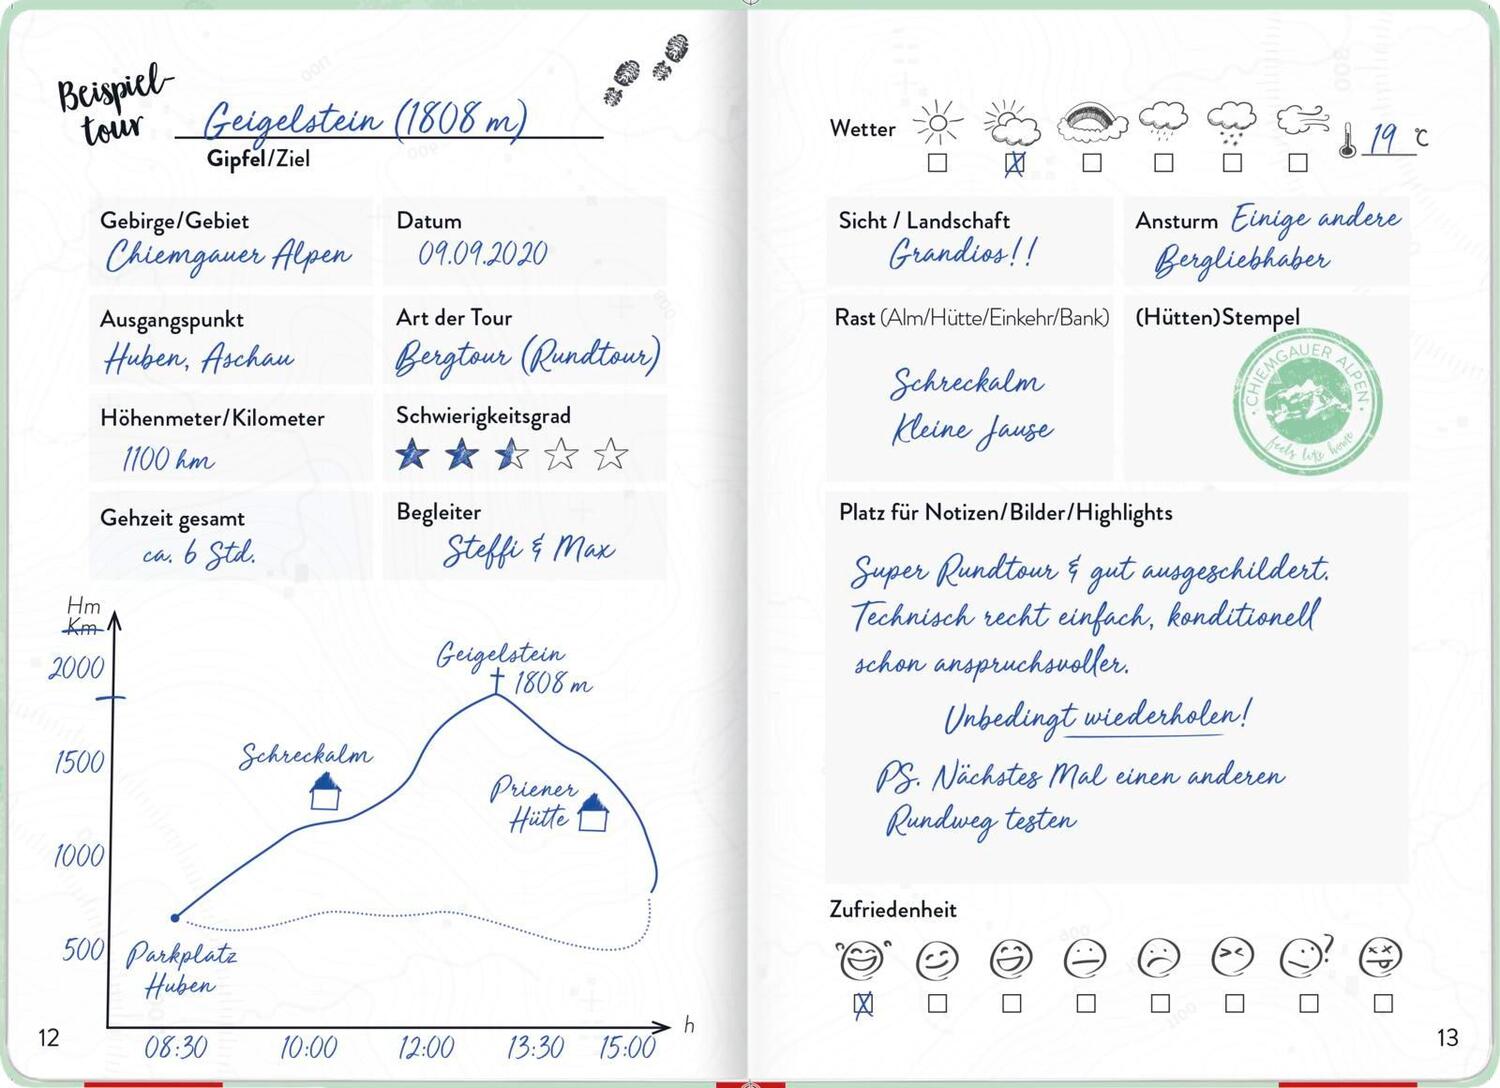 Beispiel-
tour
Geigelstein (1808 m)
Gipfel/Ziel
Gebirge/Gebiet
Chiemgauer Alpen
Datum
09.09.2020
Ausgangspunkt
Huben, Aschau
Art der Tour
Bergtour (Rundtour)
Höhenmeter/Kilometer
1100 hm
Schwierigkeitsgrad
Gehzeit gesamt
ca. 6 Std.
Begleiter
Steffi & Max
Hm
Km
2000
1500
1000
500
Geigelstein
1808 m
Schreckalm
Priener
Hütte
Parkplatz
Huben
h
08:30 10:00 12:00 13:30 15:00
12
Wetter
19 °C
Sicht / Landschaft
Grandios!!
Ansturm Einige andere
Bergliebhaber
Rast (Alm/Hütte/Einkehr/Bank)
Schreckalm
Kleine Jause
(Hütten)Stempel
CHIEMGAUER ALPEN
feels like home
Platz für Notizen/Bilder/Highlights
Super Rundtour & gut ausgeschildert.
Technisch recht einfach, konditionell
schon anspruchsvoller.
Unbedingt wiederholen!
PS. Nächstes Mal einen anderen
Rundweg testen
Zufriedenheit
13